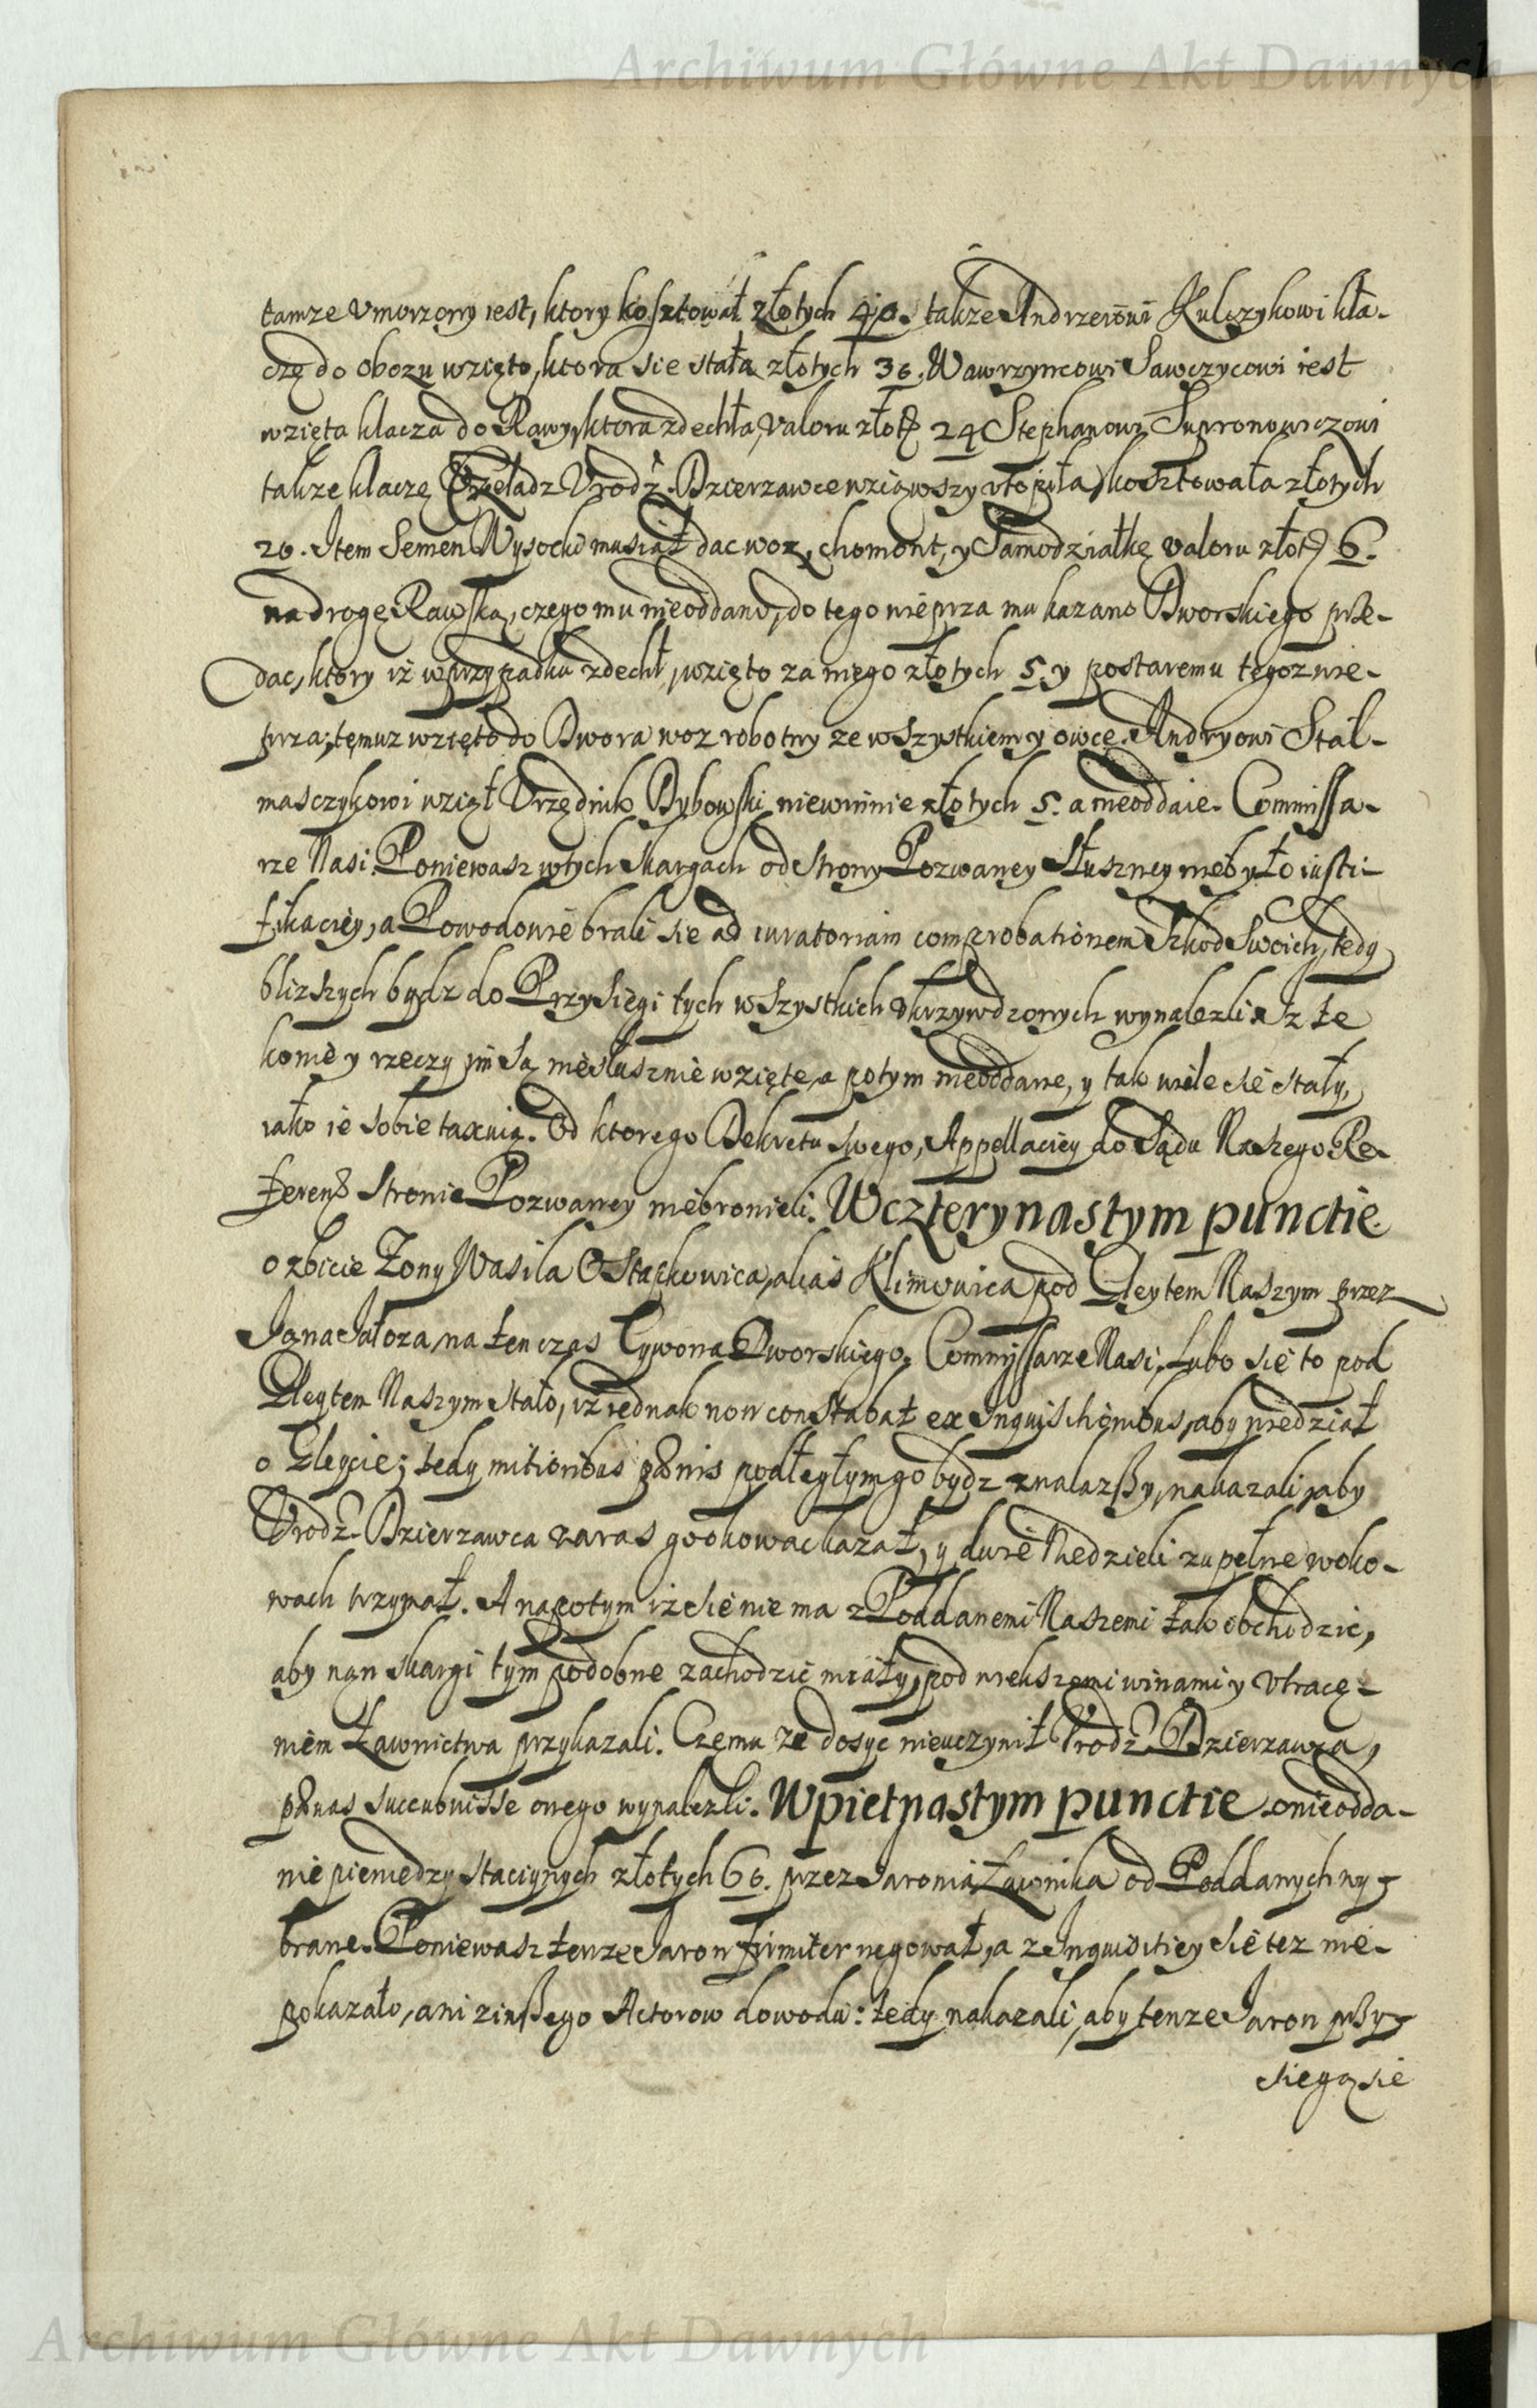 Archiwum Główne Akt Dawnych
tamze vmorzony iest, ktory kosztował złotych 40. takze Andrzeiowi Kulczykowi kła-
czę do obozu wzięto, ktora sie stała złotych 36. Wawrzyncowi Sawczycowi iest
wzięta klacza do Rawy, ktora zdechła, valoru złot 24 Stephanowi Supronowiczowi
takze klaczę Czeladz Vrodz. Dzierzawce wziąwszy vtopiła, kosztowała złotych
20. Item Semen Wysocki musiał dac woz, chomont, y Samodziałkę valoru złot 6.
na drogę Rawską, czego mu nieoddano, do tego wieprza mu kazano Dworskiego prze-
dac, ktory iż w przypadku zdechł, wzięto za niego złotych 5. y postaremu tegoz wie-
prza; temuz wzięto do Dwora woz robotny ze wszystkiem y owcę. Andryowi Stal-
masczykowi wziął Vrzędnik Dybowski niewinnie złotych 5. a nieoddaie. Commissa-
rze Nasi. Poniewasz w tych skargach od Strony Pozwaney słuszney niebyło iusti-
fikaciey, a Powodowie brali sie ad iuratoriam comprobationem Szkod Swoich, tedy
blizszych bydz do Przysięgi tych wszystkich vkrzywdzonych wynalezli, iz te
konie y rzeczy im są niesłusznie wzięte, a potym nieoddane, y tak wiele sie stały,
iako ie sobie taxuią. Od ktorego Dekretu swego, Appellaciey do Sądu Naszego Re-
feren Stronie Pozwaney niebronieli. W czterynastym punctie
o zbicie Zony Wasila Ostapkowica, alias Klimowica pod Gleytem Naszym przez
Jana Jałoza, na ten czas Cywona Dworskiego. Commissarze Nasi, Lubo sie to pod
Gleytem Naszym stało, iż iednak non constabat ex Inquisitionibus, aby wiedział
o Gleycie; tedy mitioribus pænis podległym go bydz znalazszy, nakazali, aby
Vrodz. Dzierzawca zaras go okowac kazał, y dwie Niedzieli zupełne w oko-
wach trzymał. A napotym iz sie nie ma z Poddanemi Naszemi tak obchodzic,
aby nan skargi tym podobne zachodzic miały, pod wiekszemi winami y vtracę-
niem Ławnictwa przykazali. Czemu ze dosyc nieuczynił Vrodz. Dzierzawca,
pænas succubuisse onego wynalezli. W pietnastym punctie o nieodda-
nie pieniedzy staciynych złotych 60. przez Jaronia Ławnika od Poddanych wy-
brane. Poniewasz tenze Jaron firmiter negował, a z Inquisitiey sie tez nie-
pokazało, ani z inszego Actorow dowodu: tedy nakazali, aby tenze Jaron przy-
siegą sie
Archiwum Główne Akt Dawnych